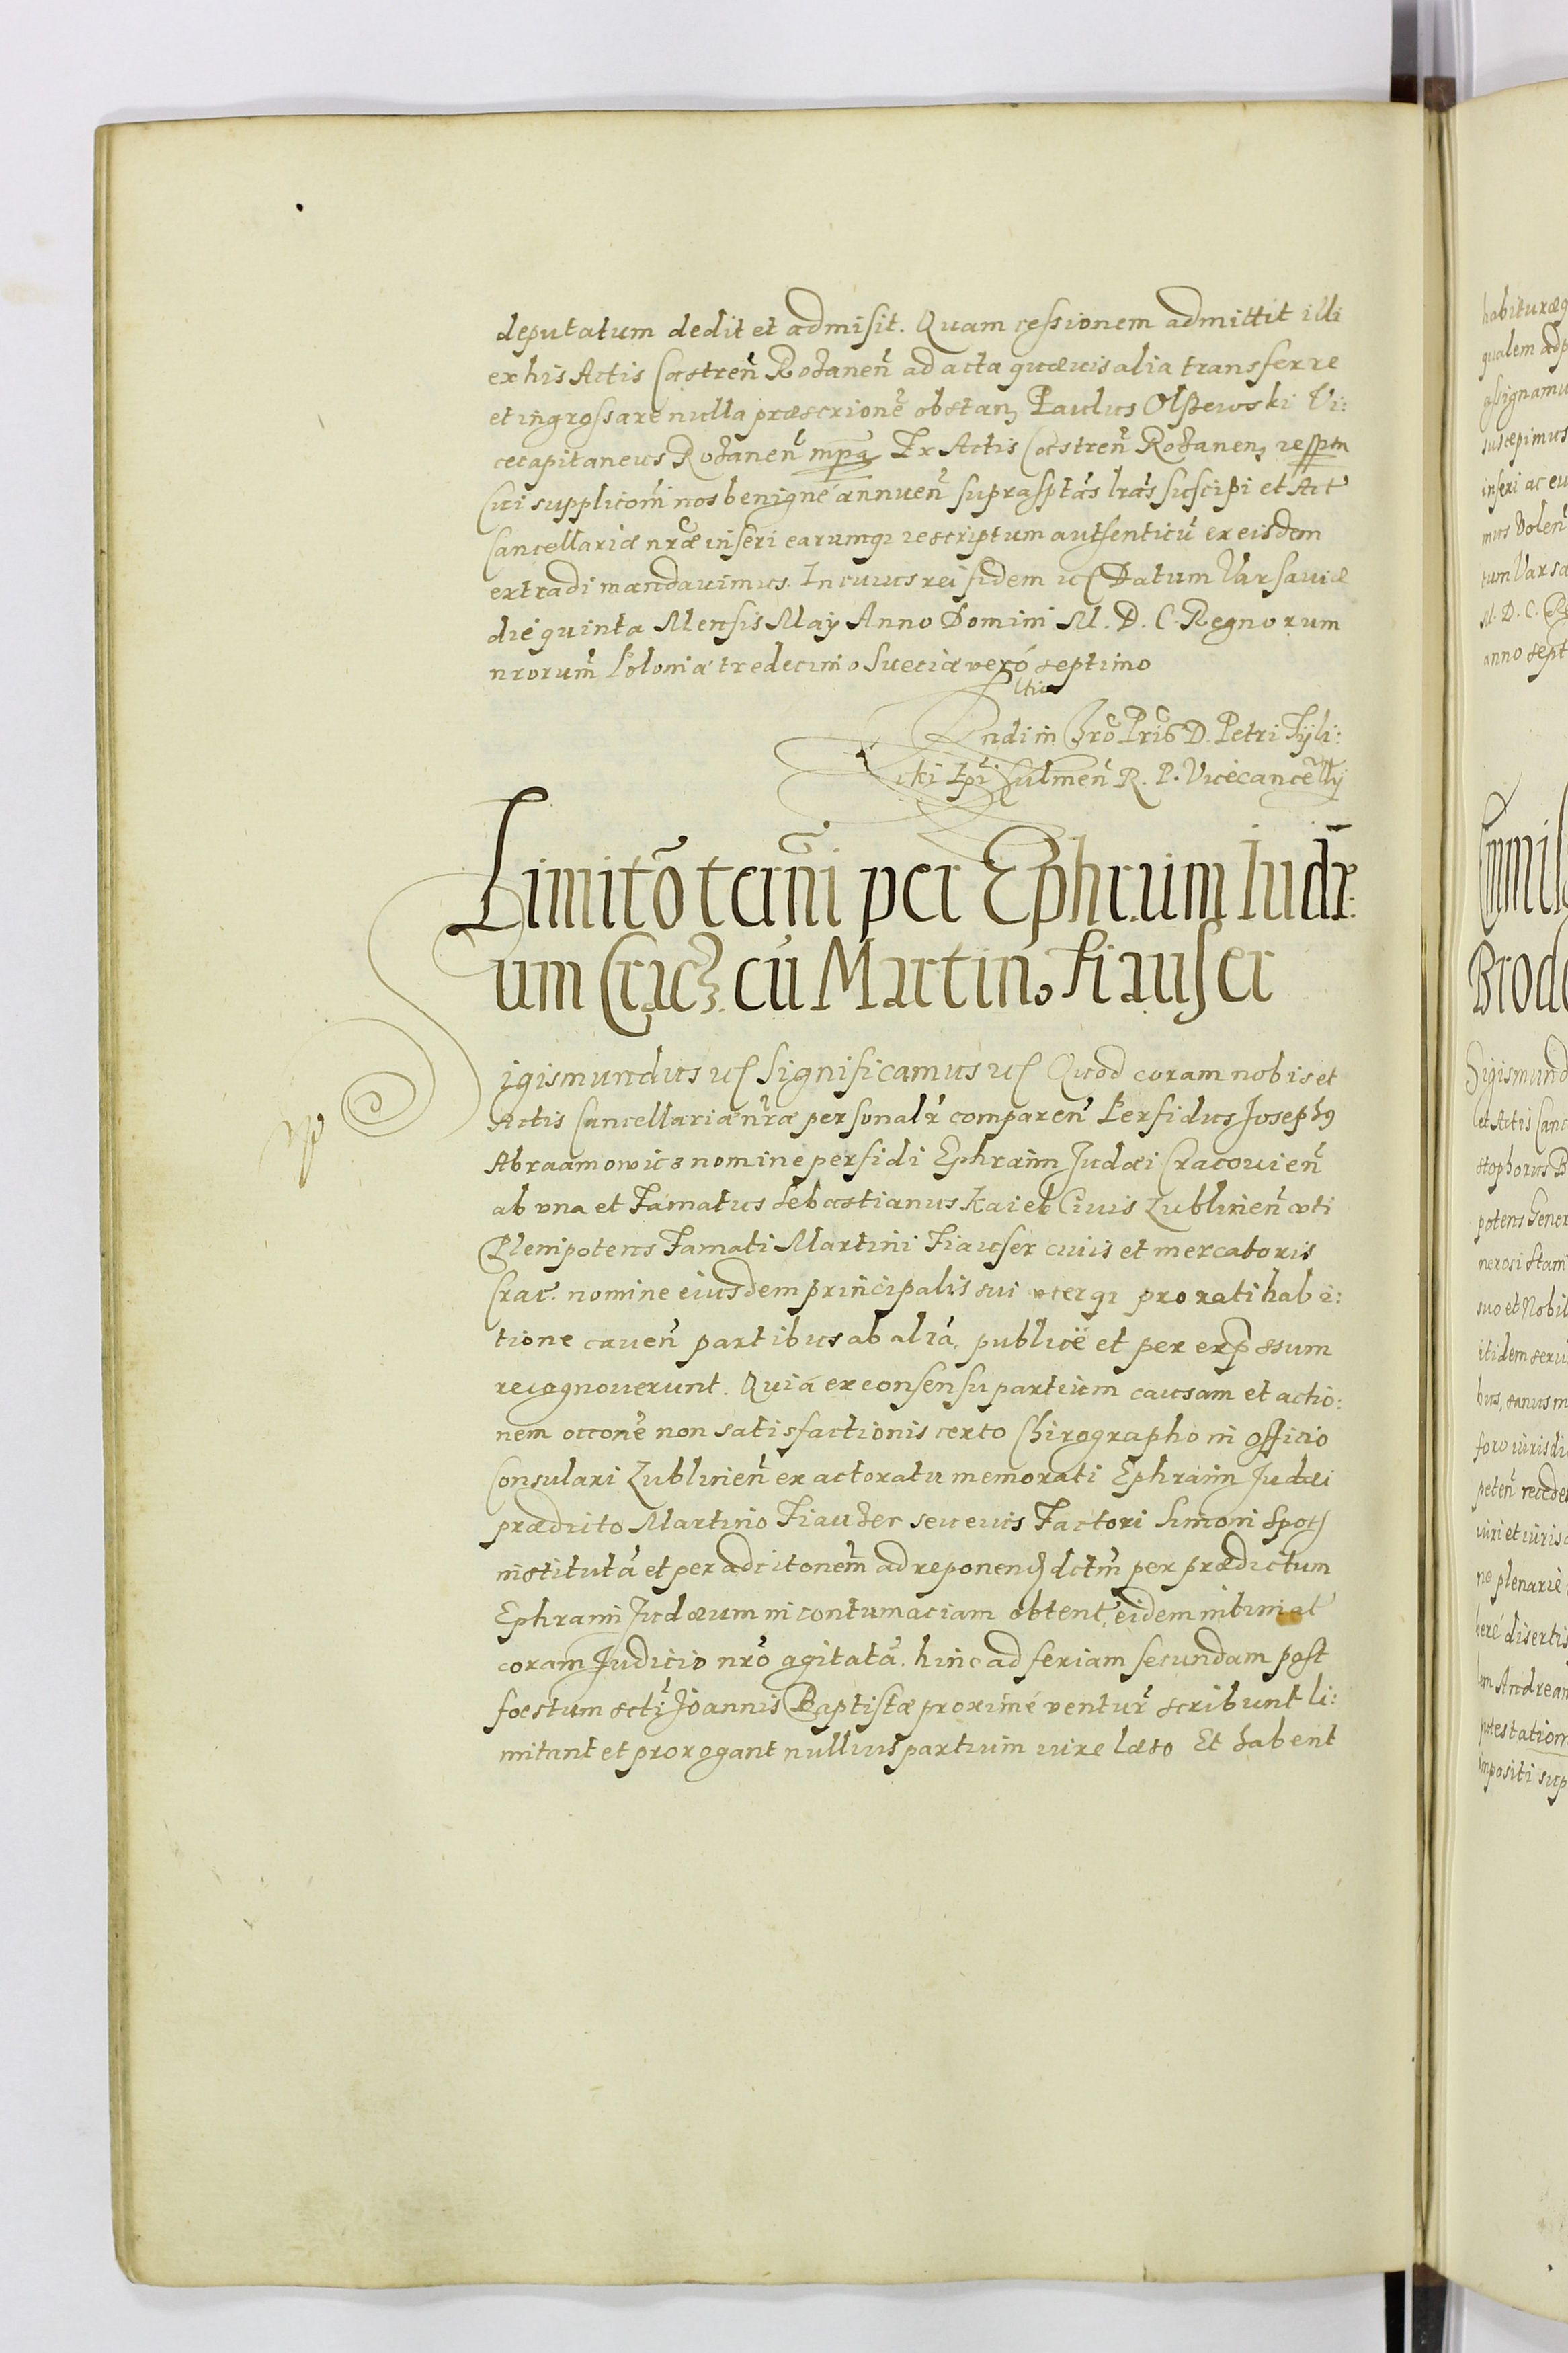 deputatum dedit et admisit. Quam cessionem admittit illi
ex his Actis Castren̄ Rohanen̄ ad acta quævis alia transferre
et ingrossare nulla præscrione obstan. Paulus Olszewski Vi:
cecapitaneus Rohanen̄ mpa Ex Actis Castren̄ Rohanen. resptm
Cui supplicaōni nos benignè annuen̄ suprasptas lras suscipi et Act
Cancellariæ nræ inseri earumq rescriptum authenticū ex eisdem
extradi mandavimus. In cuius rei fidem Datum Varsaviæ
die quinta Mensis Maÿ Anno Domini M. D. C. Regnorum
nrorum̄ Poloniæ tredecimo Sueciæ verò septimo
Rndi in Chro Pris D. Petri Tÿli:
cki Epi Culmen̄ R. P. Vicecancellÿ
Limitō termi per Ephrūm Iudæ:
um Crac. cū Martino Fiauser
Sigismundus Significamus Quod coram nobis et
Actis Cancellariæ nræ personalr̄ comparen̄ Perfidus Joseph9
Abraamowicz nomine perfidi Ephraim Judæi Cracovien̄
ab una et Famatus Sebastianus Kaier Civis Lublinen̄ uti
Plenipotens Famati Martini Fiauser civis et mercatoris
Crac. nomine eiusdem principalis sui uterq pro ratihabi:
tione caven̄ partibus ab aliá, publicè et per exp̄ssum
recognoverunt. Quiá ex consensu partium causam et actio:
nem occone non satisfactionis certo Chirographo in officio
Consulari Lublinen̄ ex actoratu memorati Ephraim Judæi
prædicto Martino Fiauser seu eius Factori Simoni
institutá et per adcitonem̄ ad reponen dctm̄ per prædictum
Ephraim Judæum in contumaciam obtent eidem intimat
coram Judicio nrō agitatā. hinc ad feriam secundam post
foestum scti Joannis Baptistæ proximè ventur̄ scribunt li:
mitant et prorogant nullius partium iure læso Et habent